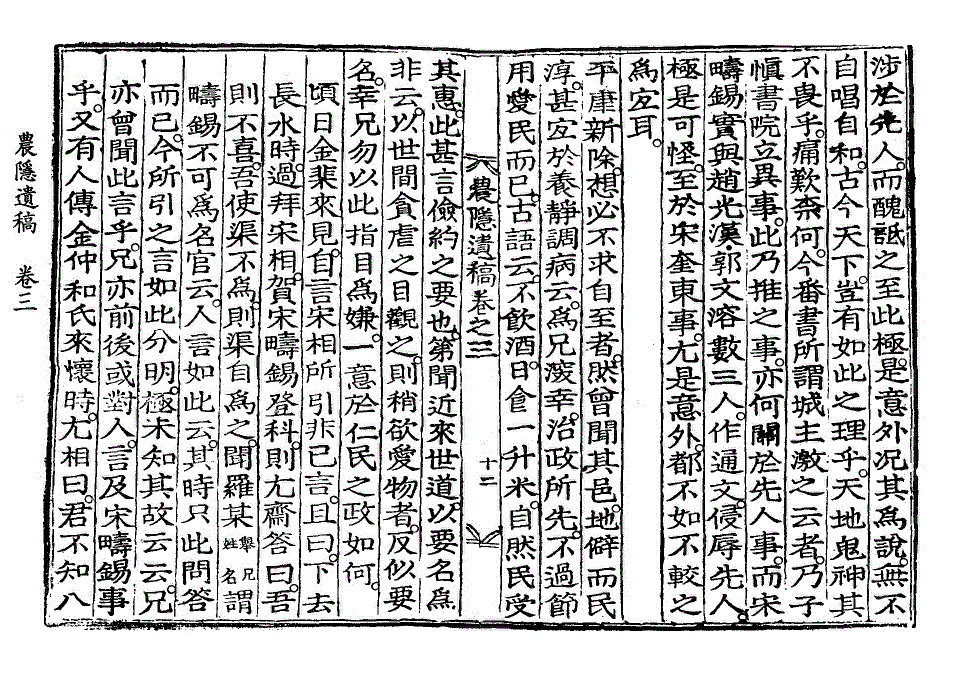 涉於先人。而醜詆之至此極。是意外况其爲說。無不
自唱自和。古今天下。豈有如此之理乎。天地鬼神其
不畏乎。痛歎柰何。今番書所謂城主激之云者。乃子
愼書院立異事。此乃推之事。亦何關於先人事。而宋
疇錫實與趙光漢,郭文溶數三人。作通文。侵辱先人。
極是可怪。至於宋奎東事。尤是意外。都不如不較之
爲宜耳。
平康新除。想必不求自至者。然曾聞其邑。地僻而民
淳。甚宜於養靜調病云。爲兄深幸。治政所先。不過節
用愛民而已。古語云。不飮酒。日食一升米。自然民受
農隱遺稿卷之三 十二
其惠。此甚言儉約之要也。第聞近來世道。以要名爲
非云。以世間貪虐之目觀之。則稍欲愛物者。反似要
名。幸兄勿以此指目爲嫌。一意於仁民之政如何。
頃日金棐來見。自言宋相所引非已言。且曰。下去
長水時。過拜宋相。賀宋疇錫登科。則尤齋答曰。吾
則不喜。吾使渠不爲。則渠自爲之。聞羅某擧兄姓名謂
疇錫不可爲名官云。人言如此云。其時只此問答
而已。今所引之言如此分明。極未知其故云云。兄
亦曾聞此言乎。兄亦前後或對人。言及宋疇錫事
乎。又有人傳金仲和氏來懷時。尤相曰。君不知八
農隱遺稿 卷三